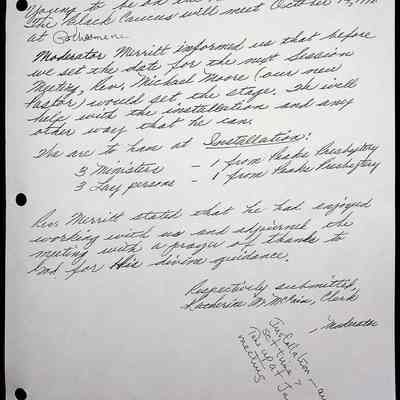 Young to be on the
The Black Caucus will meet October 14,
at
Moderator Merritt informed us that before
we set the date for the next Session
Meeting, Rev. Michael Moore (our new
Pastor) would set the stage. He will
help with the installation and any
other way that he can.
We are to have at Installation:
3 Ministers - 1 from Peaks Presbytery
3 Lay persons - 1 from Peaks Presbytery
Rev. Merritt stated that he had enjoyed
working with us and adjourned the
meeting with a prayer of thanks to
God for His divine guidance.
Respectively submitted,
Katherine M. McCain, Clerk
, Moderator
Installation -
set time &
Take up at Ja
meeting